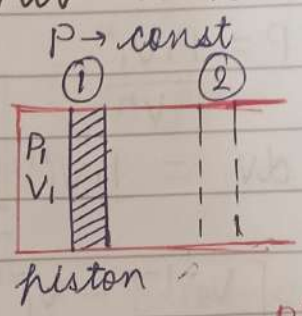 P → const
① ②
P₁
V₁
piston